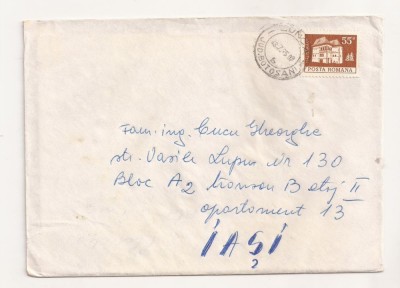 55ᴮ
POSTA ROMANA
BOTOSANI
Fam. ing. Cucu Gheorghe
str. Vasile Lupu Nr 130
Bloc A2 tronson B etaj II
apartament 13
IAȘI